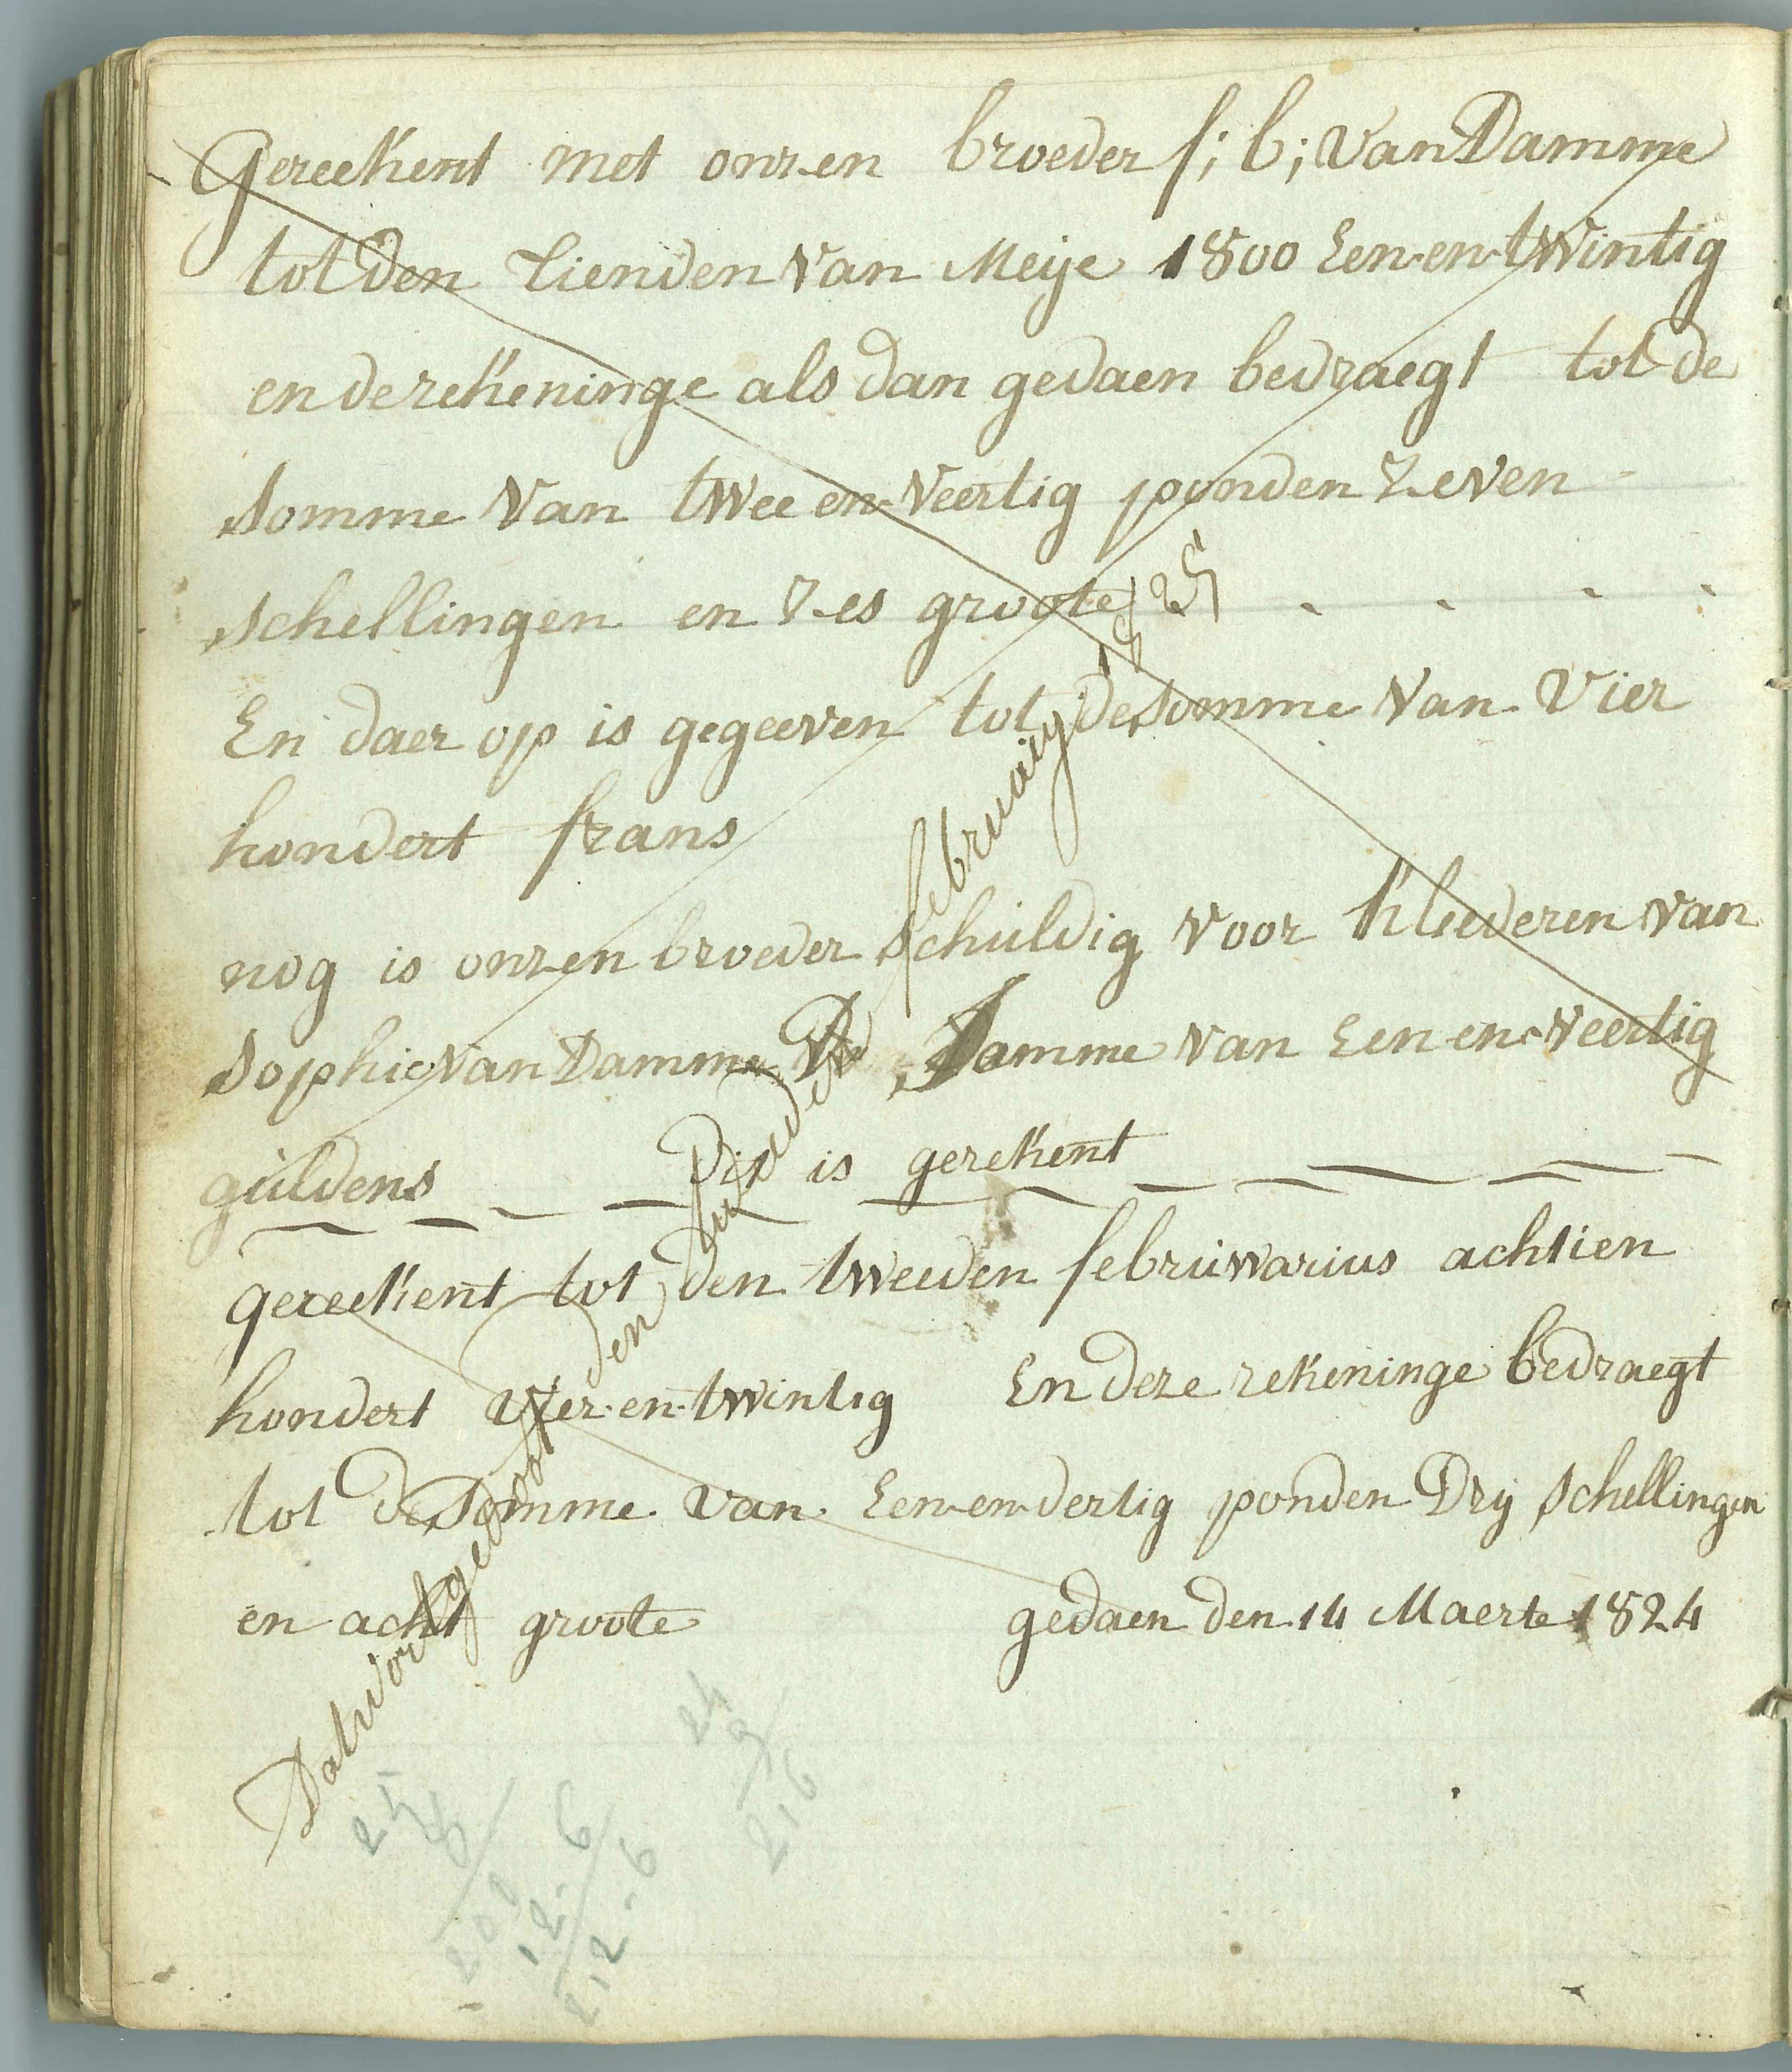 Gereekent met onzen broeder f; b; Van Damme
tot den tienden Van Meije 1800 Een-en-twintig
en de rekeninge als dan gedaen bedraegt tot de
somme Van twee en Veertig ponden Zeven
schellingen en Zes groote
En daer op is gegeeven tot de somme Van Vier
hondert frans
nog is onzen broeder schuldig voor kleederen van
Sophie Van Damme De Somme van Een en-Veertig
guldens Dit is gerekent
gereekent tot den tweeden februwarius achtien
hondert Vier-en-twintig En deze rekeninge bedraegt
tot de Somme van Een-en-dertig ponden Drij schellingen
en acht groote gedaen den 14 Maerte 1824
den tweeden february 1825
25
8
200
12-6
212-6
24
9
216